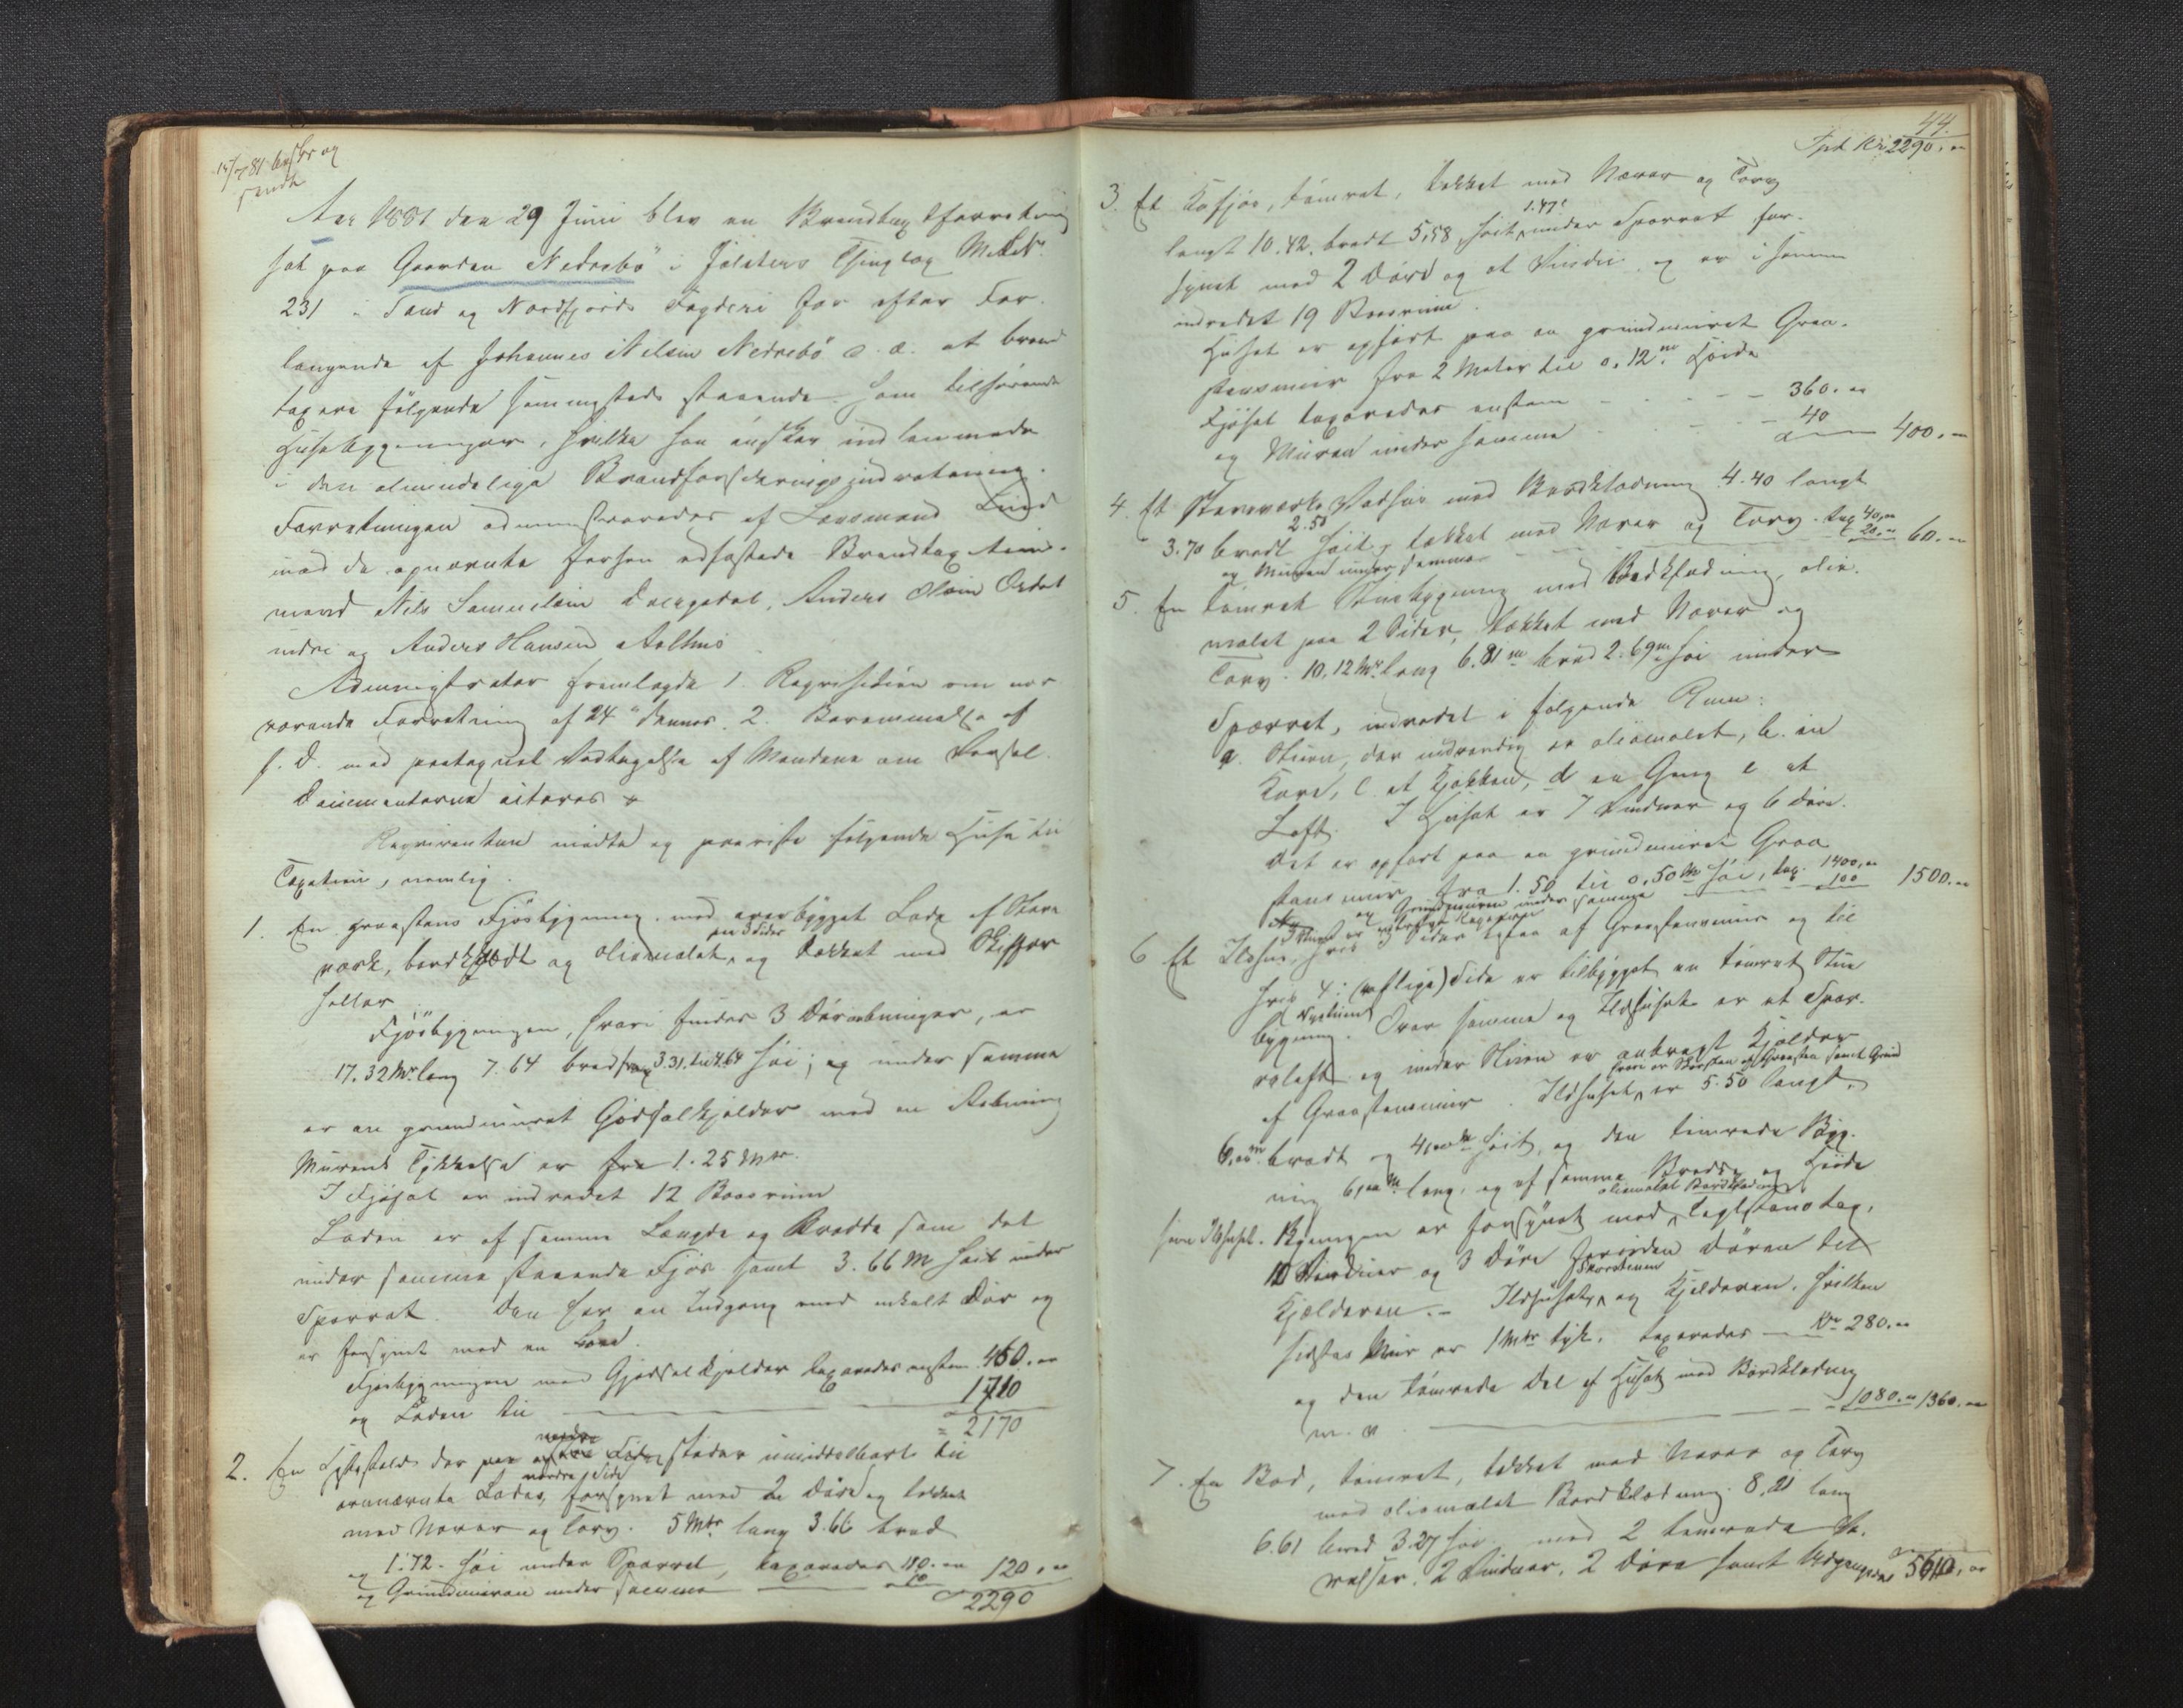 14/7 81 beskr og
sendt
Aar 1881 den 29 Juni blev en Brandtaxtforretning
holt paa Gaarden Nedrebö i Jölsters Thinglag M. LN.
231 i Sönd og Nordfjords Fogderi for efter For-
langende af Johannes Nilsen Nedrebö s. d. at brand
taxere fölgende sammesteds staaende ham tilhörende
Husebygninger, hvilke han önsker indlemmede
i den almindelige Brandforsikringsindretning.
Forretningen administreredes af Lensmand Lind
med de opnævnte forhen edfæstede Brandtaxtmænd
mænd Nils Samuelsen Dvergsdal, Anders Olsen Årdal
indre og Anders Hansen Aalhus
Administrator fremlagde 1. Reqvisition om nær
værende Forretning af 24 dennes 2. Berammelse af
s. D. med paategnet Vedtagelse af Mændene om Varsel.
Documenterne aiteres
Reqvirenten mödte og paaviste fölgende Huse til
Taxation, nemlig.
1. En graastens Fjösbygning med overbygget Lade af Stave
værk, bordklædt og oliemalet paa 3 Sider og tækket med Skiffer
heller
Fjösbygningen, hvori findes 3 Döraabninger, er
17.32 Mtr lang 7.64 bred fra 3.31 til 4.64 höi; og under samme
er en grundmuret Gödselkjelder med en Aabning
Murens Tykkelse er fra 1.25 Mtr.
I Fjöset er indredet 12 Baasrum
Laden er af samme Længde og Bredde som det
under samme staaende Fjös samt 3.66 M höit under
Sperret. Den har en Indgang med enkelt Dör og
er forsynet med en
Fjösbygningen med Gjödselkjelder taxeredes 460.00
og Laden til 1710
= 2170
2. En der paa Side stöder umiddelbart til
nordre Side
ovennævnte Lades, forsynet med 2 Döre og tækket
med Næver og Torv. 5 Mtr lang 3.66 bred
og 1.72 höi under Sperret, taxeredes 110.00
og Grundmuren under samme 10 120.00
2290
44.
Tpt Kr 2290,00
3. Et Kufjös, tömret, tækket med Næver og Torv
langt 10.42. bredt 5,58 höit 1.47 under Sperret for-
synet med 2 Döre og et Vindu og er i samme
indredet 19 Baasrum.
Huset er opfört paa en grundmuret Graa-
stensmur fra 2 Meter til 0.12 m Höide
Fjöset taxeredes 360.00
og Muren under samme 40 400.00
4. Et Staveværks Vedhus med Bordklædning 4.40 langt
3.70 bredt 2.50 höit, tækket med Næver og Torv. tax 40,00
og Muren under samme 20.00 60.00
5. En tömret Stuebygning med Bordklædning, olie-
malet paa 2 Sider, tækket med Næver og
Torv. 10,12 Mtr lang 6.81 m bred 2.69 m höi under
Sperret, indredet i fölgende Rum:
a. Stuen, der indvendig er oliemalet, b. en
Kove, c. et Kjökken, d en Gang e et
Loft. I Huset er 7 Vinduer og 6 Döre.
Det er opfört paa en grundmuret Graa
stensmur fra 1.50 til 0,50 M höi, tax. 1400,00
og Grundmuren under samme 100 1500.00
6 Et Ildhus, hvis 3 Sider bestaa af Graastensmur og til
hvis 4: (östlige) Side er tilbygget en tömret Stue
bygning. Over samme og Ildhuset er et Sper-
reloft og under Stuen er anbragt Kjelder
af Graastensmur. Ildhuset er 5.50 langt,
6,00 m bredt og 4,00 M höit, og den tömrede Byg-
ning 6,00 M lang, og af samme Bredde og Höide
som Ildhuset. Bygningen er forsynet med oliemalet Bordklædning, teglstenstag,
10 Vinduer og 3 Döre foruden Dören til
Kjælderen. Ildhuset, Skorstenen og Kjelderen, hvilken
sidstes Mur er 1 Mtr tyk, taxeredes Kr 280.00
og den tömrede Del af Huset med Bordklædning
m. v. 1080.00 1360.00
7. En Bod, tömret, tækket med Næver og Torv
med oliemalet Bordklædning. 8,21 lang
6.61 bred 3.27 höi med 2 tömrede Væ-
relser. 2 Vinduer, 2 Döre samt 5610,00